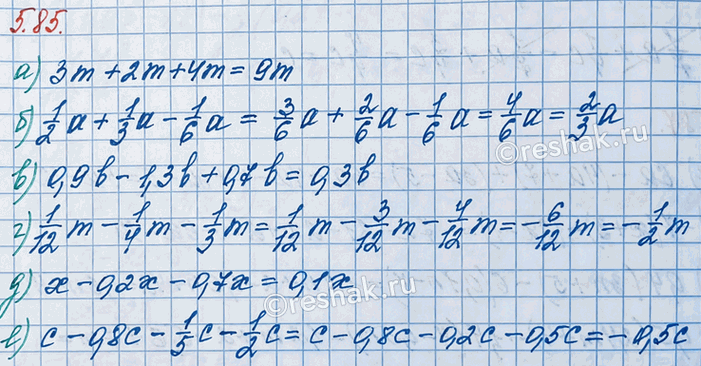 5.85.
а) 3m + 2m + 4m = 9m
б) 1/2 a + 1/3 a - 1/6 a = 3/6 a + 2/6 a - 1/6 a = 4/6 a = 2/3 a
в) 0,9b - 1,3b + 0,7b = 0,3b
г) 1/12 m - 1/4 m - 1/3 m = 1/12 m - 3/12 m - 4/12 m = - 6/12 m = - 1/2 m
д) x - 0,2x - 0,7x = 0,1x
е) c - 0,8c - 1/5 c - 1/2 c = c - 0,8c - 0,2c - 0,5c = - 0,5c
©reshak.ru
©reshak.ru